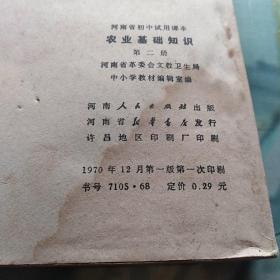 河南省初中试用课本
农业基础知识
第二册
河南省革委会文教卫生局
中小学教材编辑室编
河南人民出版社出版
河南省新华书店发行
许昌地区印刷厂印刷
1970年12月第一版第一次印刷
书号 7105·68 定价 0.29 元